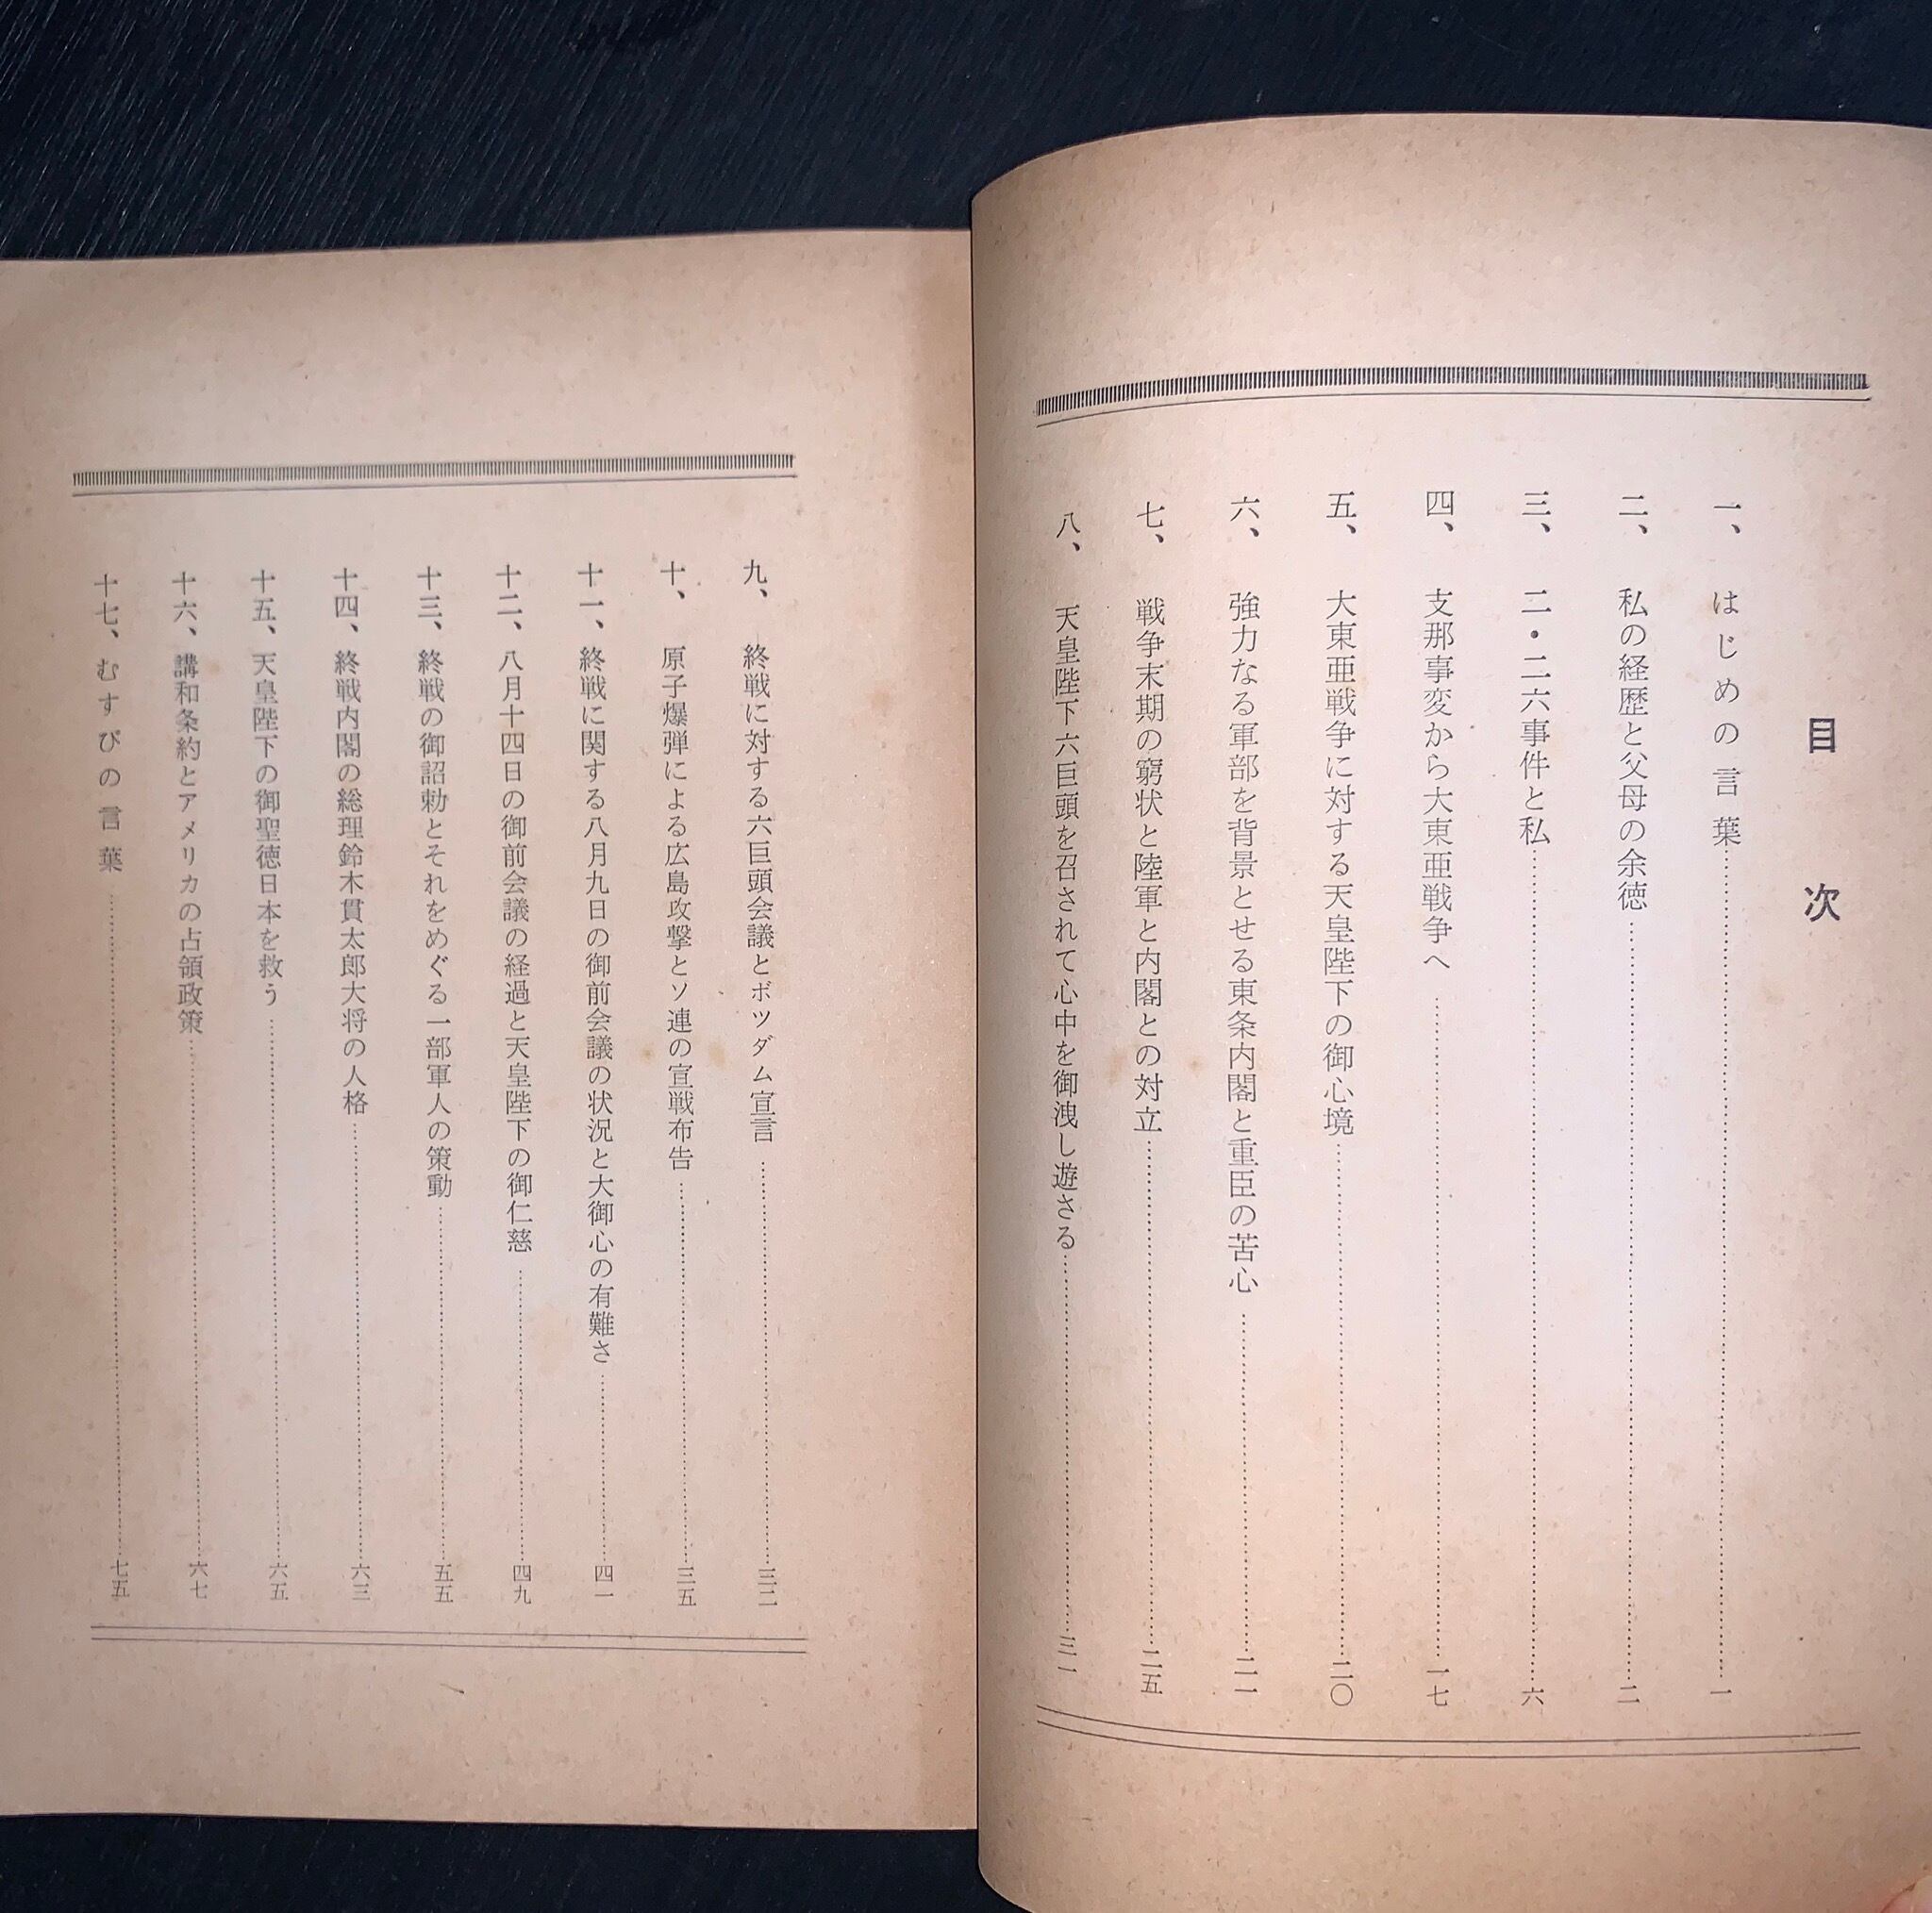 目次
一、はじめの言葉……一
二、私の経歴と父母の余徳……二
三、二・二六事件と私……六
四、支那事変から大東亜戦争へ……一七
五、大東亜戦争に対する天皇陛下の御心境……二〇
六、強力なる軍部を背景とせる東条内閣と重臣の苦心……二一
七、戦争末期の窮状と陸軍と内閣との対立……二五
八、天皇陛下六巨頭を召されて心中を御洩し遊さる……三一
九、終戦に対する六巨頭会議とボツダム宣言……三二
十、原子爆弾による広島攻撃とソ連の宣戦布告……三五
十一、終戦に関する八月九日の御前会議の状況と大御心の有難さ……四一
十二、八月十四日の御前会議の経過と天皇陛下の御仁慈……四九
十三、終戦の御詔勅とそれをめぐる一部軍人の策動……五五
十四、終戦内閣の総理鈴木貫太郎大将の人格……六三
十五、天皇陛下の御聖徳日本を救う……六五
十六、講和条約とアメリカの占領政策……六七
十七、むすびの言葉……七五